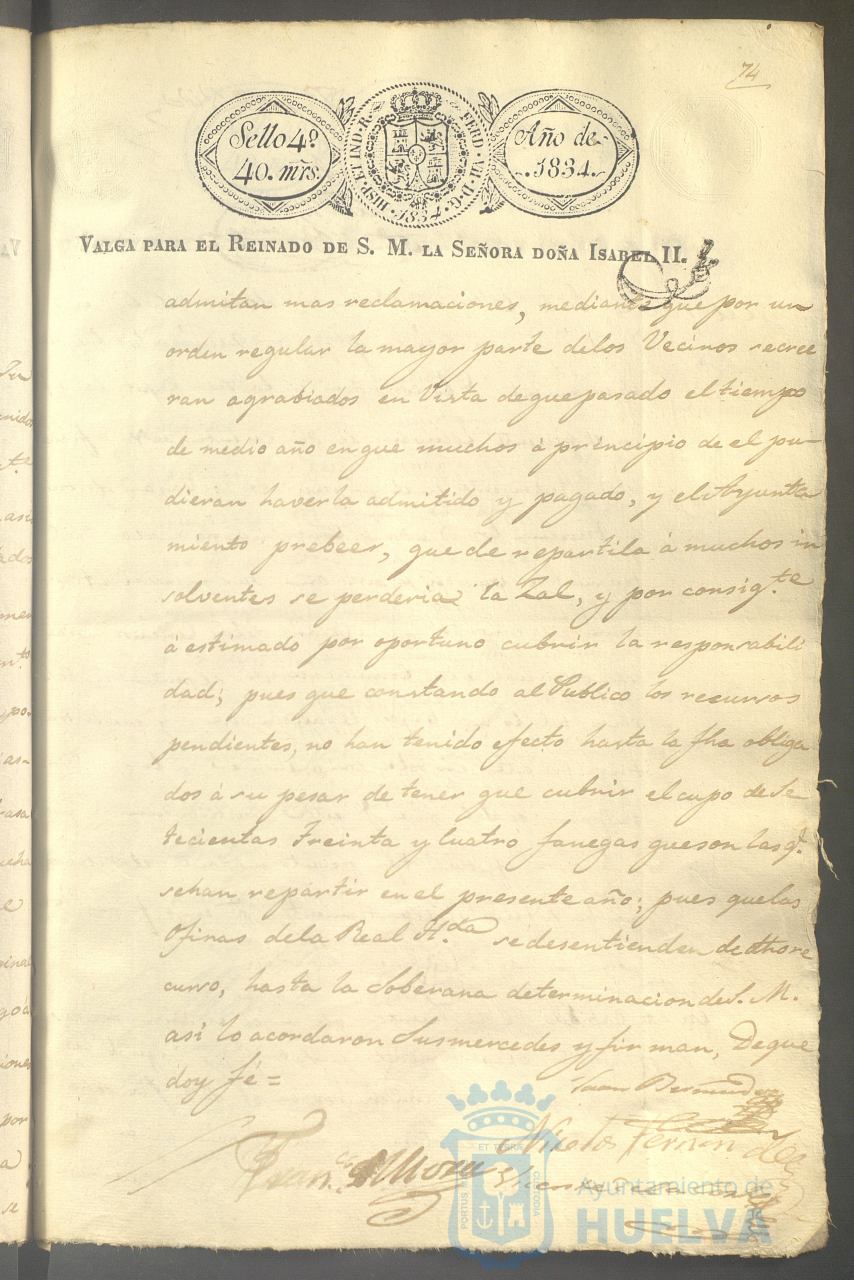 74
Sello 4º
40. mrs.
HISP. ET IND. R. FERD. VII. D. G. 1834.
Año de
1834.
VALGA PARA EL REINADO DE S. M. LA SEÑORA DOÑA ISABEL II.
admitan mas reclamaciones, mediante que por un
orden regular la mayor parte delos Vecinos secree
ran agrabiados en Vista deque pasado el tiempo
de medio año en que muchos á principio de el pu-
dieran haverla admitido y pagado, y el Ayunta
miento prebeer, que de repartila á muchos in
solventes se perderia la Zal, y por consig.te
á estimado por oportuno cubrir la responsabili
dad; pues que constando al Publico los recursos
pendientes, no han tenido efecto hasta la fha obliga
dos á su pesar de tener que cubrir el cupo de Se
tecientas treinta y Cuatro fanegas queson las q.
sehan repartir en el presente año; pues quelas
Ofinas dela Real H.da se desentienden de dho re
curso, hasta la Soberana determinacion de S. M.
asi lo acordaron Susmercedes y firman, Deque
doy fé =
Juan Bermudez
Nicolas Fernandez
Fran.co Mora
Vicente
PORTUS ET TERRE CUSTODIA
Ayuntamiento de
HUELVA